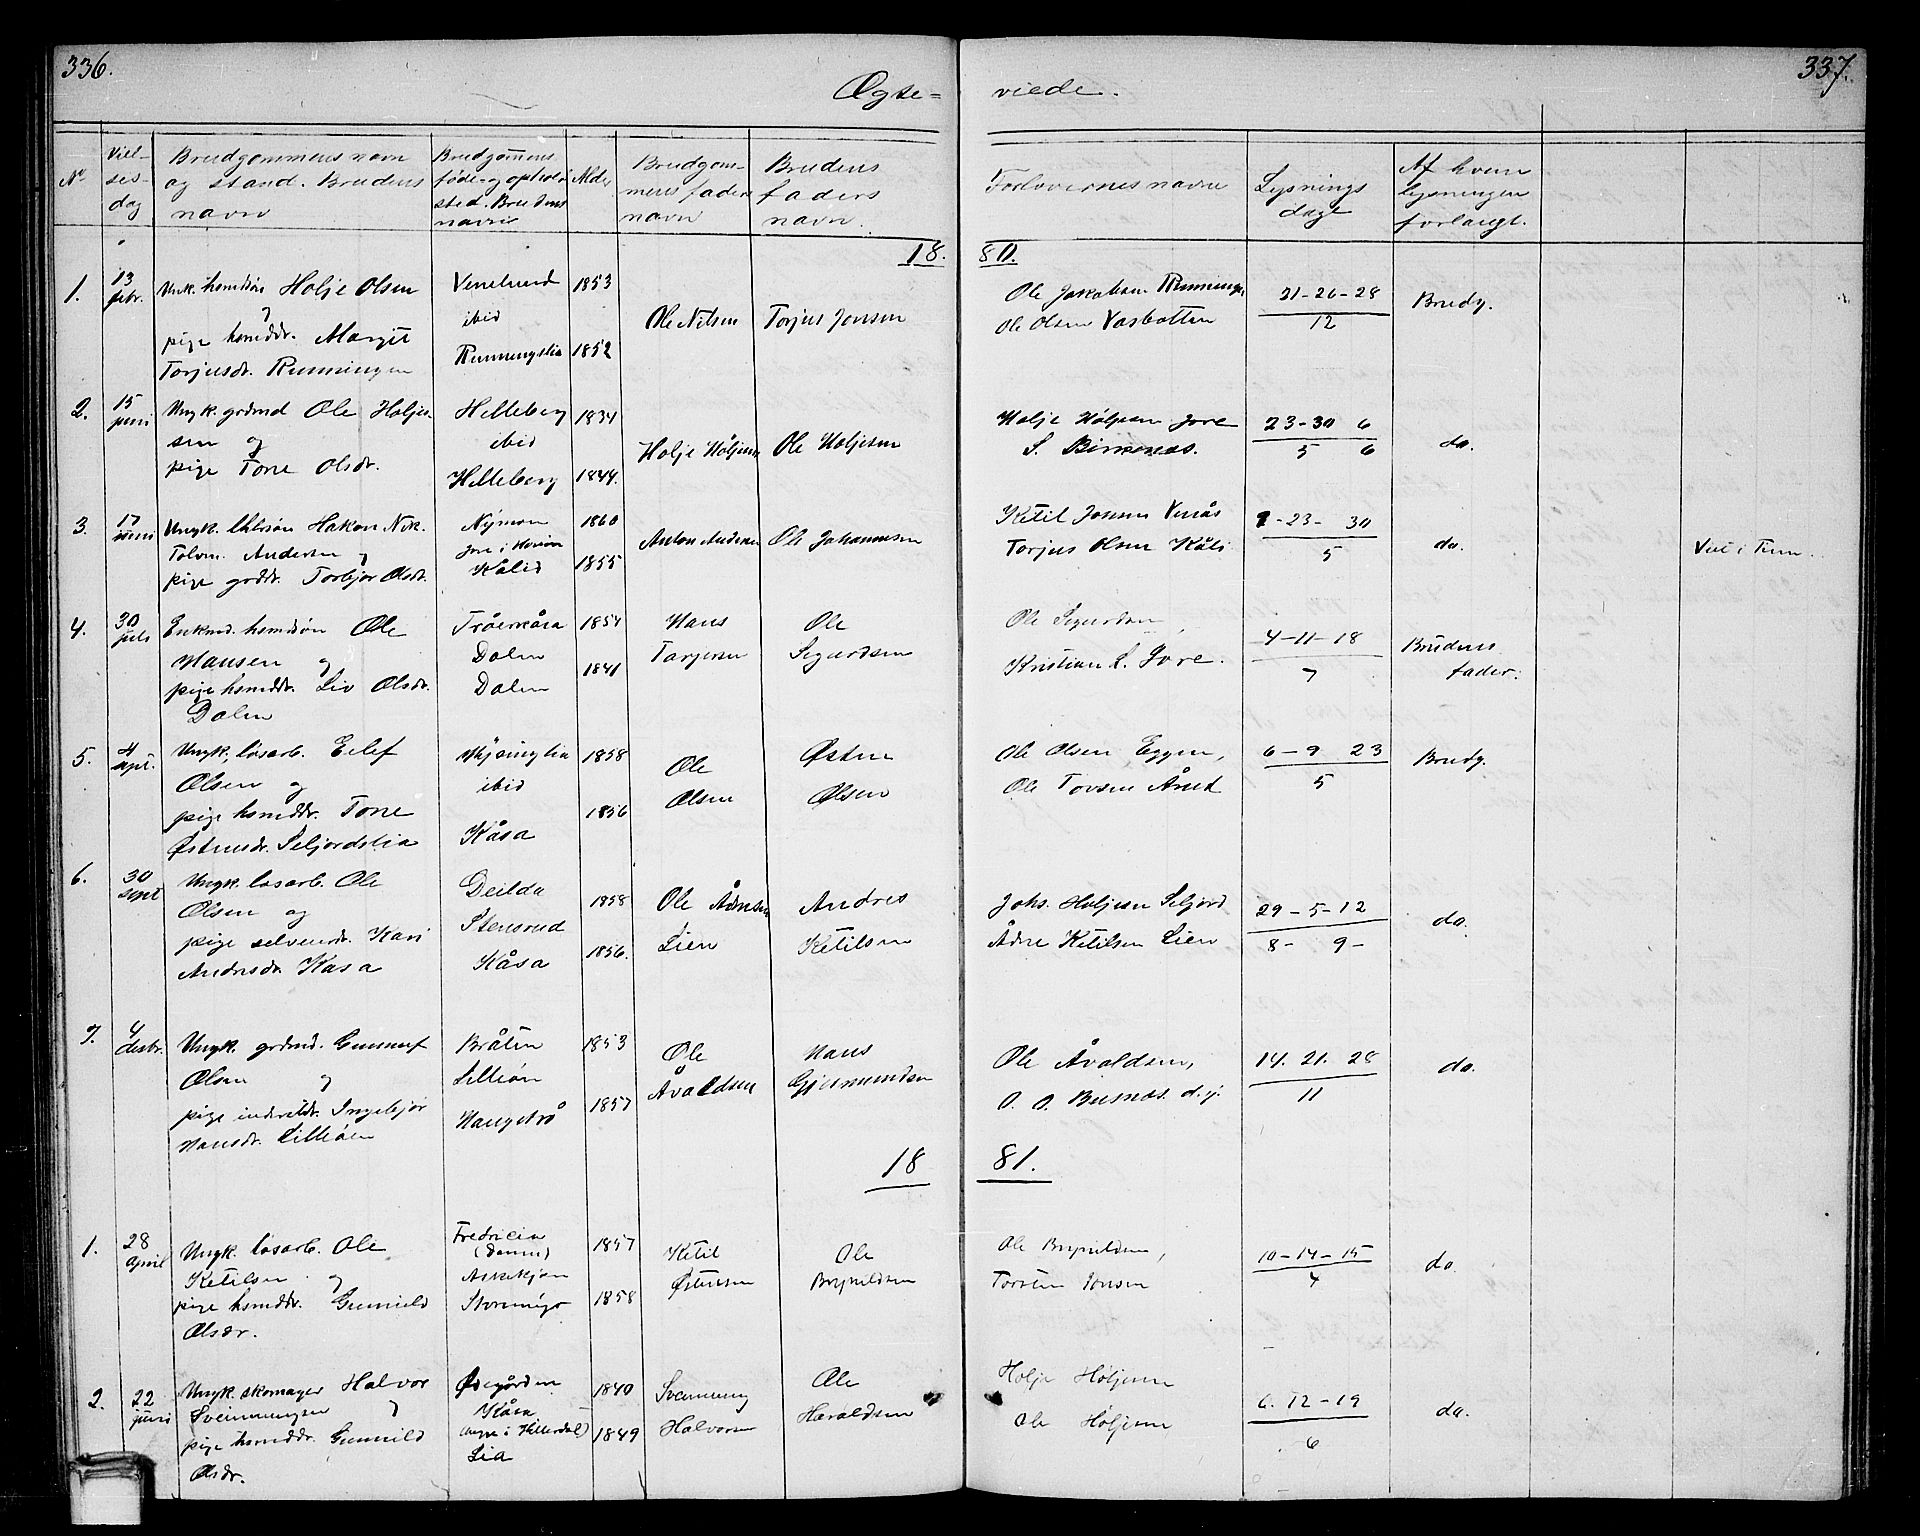 336.
337.
Ægte= viede.
No
Viel-
ses-
dag
Brudgommens navn
og stand. Brudens
navn
Brudgommens
føde- og opholds
sted. Brudens
navn
Alder
Brudgom-
mens faders
navn
Brudens
faders
navn.
Forlovernes navne
Lysnings
dage
Af hvem
lysningen
forlangt.
18. 80.
1.
13
febr.
Ungk. husmdsøn Holje Olsen
og
pige husmddr. Margit
Torjusdr. Runningen
ibid
Runningslia
1853
1852
Ole Nilsen
Torjus Jonsen
Ole Jakobsen Runninge
Ole Olsen Vasbotten
21-26-28
12
Brudg.
2.
15
juni
Ungk. grdmd Ole Holje-
sen og
pige Tone Olsdr.
Helleberg
ibid
Helleberg
1834
1844.
Holje Høljesen
Ole Holjesen
Holje Høljesen Jore
S. Birkenæs.
23-30 6
5 6
do.
3.
17
juni
Ungk. Hakon Nik.
Tolvm. Andersen og
pige grddr. Torbjør Olsdr.
Nymoen
Kålid
1860
1855
Anton Andersen
Ole Johannesen
Ketil Jonsen Venås
Torjus Olsen Kåli
9-23- 30
5
do.
Viet i Tinn.
4.
30
juli
Enkmd. husmdsøn Ole
Hansen og
pige husmddr. Liv Olsdr.
Dalen
Dalen
Dalen
1851
1841
Hans
Targesen
Ole
Sigurdsen
Ole Sigurdsen,
Kristian L. Jore.
4-11-18
7
Brudens
fader.
5.
4
Ungk. løsarb. Eilef
Olsen og
pige husmddr. Tone
Østensdr. Seljordslia
ibid
Kåsa
1858
1856
Ole
Olsen
Østen
Olsen
Ole Olsen Eggen,
Ole Tovsen Årud
6-9 23
5
Brudg.
6.
30
sept
Ungk. løsarb. Ole
Olsen og
pige selveierdr. Kari
Andresdr. Kasa
Deilda
Stensrud
Kåsa
1858
1856.
Ole Ådnesen
Lien
Andres
Ketilsen
Johs. Holjesen Seljord
Ådne Ketilsen Lien
29-5-12
8- 9-
do.
7.
4
desbr.
Ungk. grdmd. Gunnuf
Olsen og
pige inderstdr. Ingebjør
Hansdr. Lilleøen
Bråten
Lilleøen
Haugstrå
1853
1857
Ole
Åvaldsen
Hans
Gjermundsen
Ole Åvaldsen,
O. O. Busnæs. d.y.
14. 21. 28
11
do.
18 81.
1.
28
April
Ungk. løsarb. Ole
Ketilsen og
pige husmddr. Gunnild
Olsdr.
Fredricia
1857
1858
Ketil
Østensen
Ole
Brynildsen
Ole Brynildsen,
Torsten Jonsen
10-14-15
4
do.
2.
22
juni
Ungk. skomager Halvor
Sveinungsen og
pige husmddr. Gunnild
Olsdr.
Ødegården
Kåsa
Lia
1840
1849
Sveinung
Halvorsen
Ole
Haraldsen
Holje Høljesen
Ole Høljesen
6. 12-19
6
do.